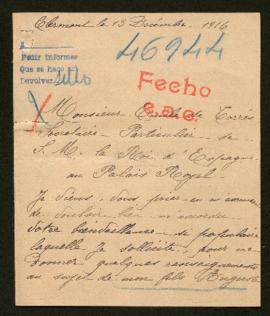 Clermont le 13 Décembre 1916
46944
Pedir informes
Que se haga así
Devolver sello
Fecho
Monsieur de Torrés
Secrétaire Particulier de
S. M. le Roi d'Espagne
au Palais Royal
Je viens, vous
de vouloir bien m'accorder
votre bienveillance si populaire
laquelle je sollicite, pour me
donner quelques renseignements
au sujet de mon fils Auguste